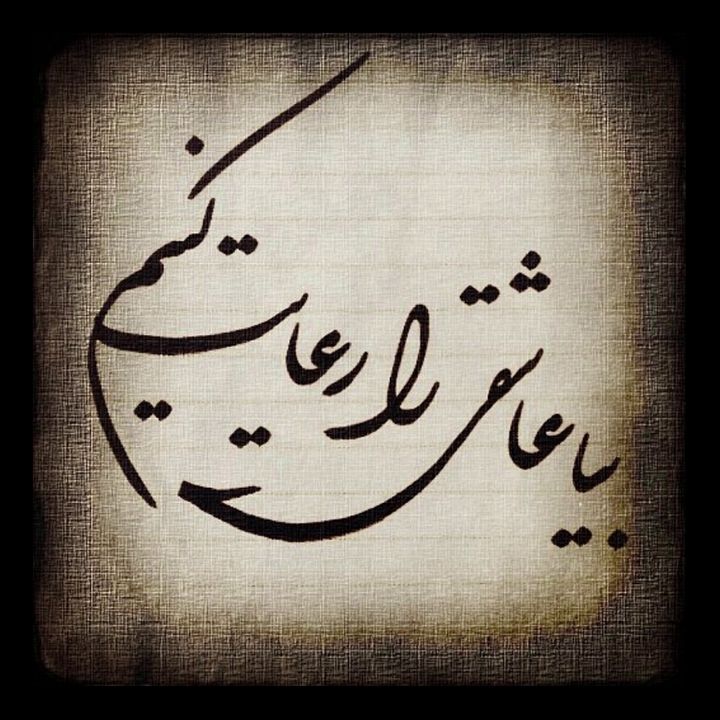 بیا عاشقی را رعایت کنیم